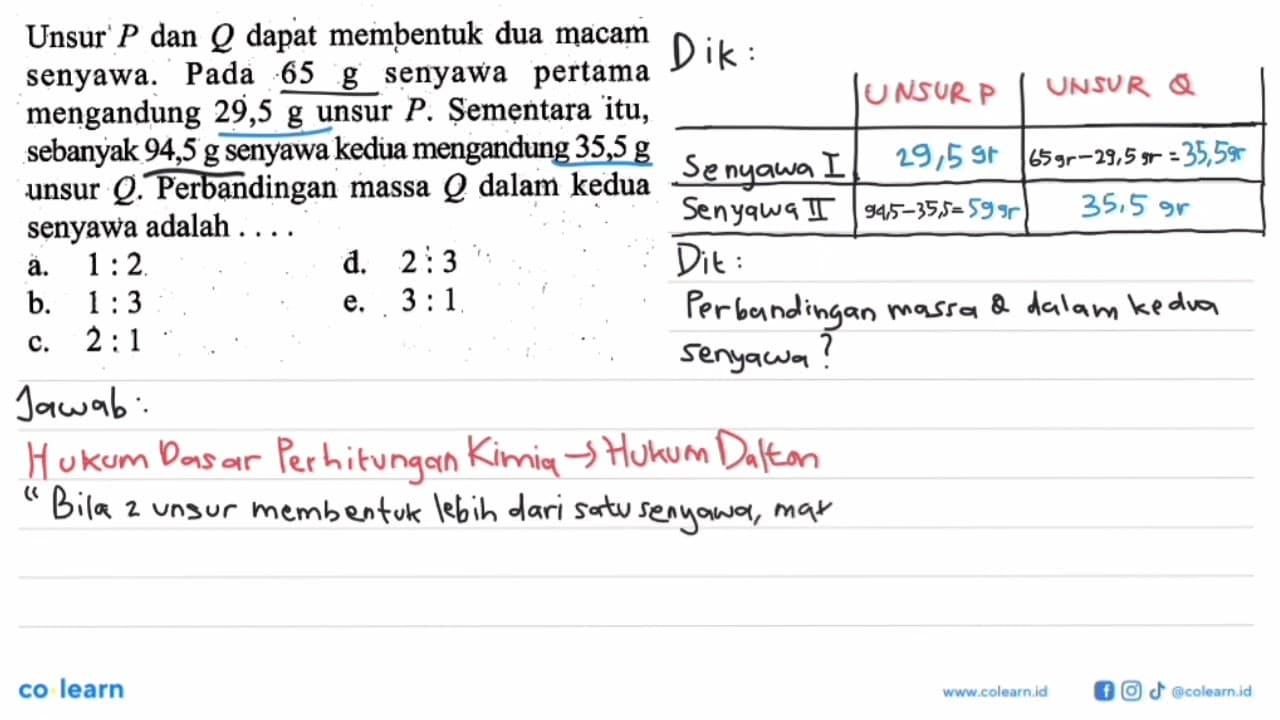 Unsur P dan Q dapat membentuk dua macam
senyawa. Pada 65 g senyawa pertama
mengandung 29,5 g unsur P. Sementara itu,
sebanyak 94,5 g senyawa kedua mengandung 35,5 g
unsur Q. Perbandingan massa Q dalam kedua
senyawa adalah . . . .
a. 1 : 2
b. 1 : 3
c. 2 : 1
d. 2 : 3
e. 3 : 1
Dik :
UNSUR P UNSUR Q
Senyawa I 29,5 gr 65 gr - 29,5 gr = 35,5 gr
Senyawa II 94,5 - 35,5 = 59 gr 35,5 gr
Dit :
Perbandingan massa Q dalam kedua
senyawa ?
Jawab :
Hukum Dasar Perhitungan Kimia → Hukum Dalton
“ Bila 2 unsur membentuk lebih dari satu senyawa, mak
co learn
www.colearn.id @colearn.id